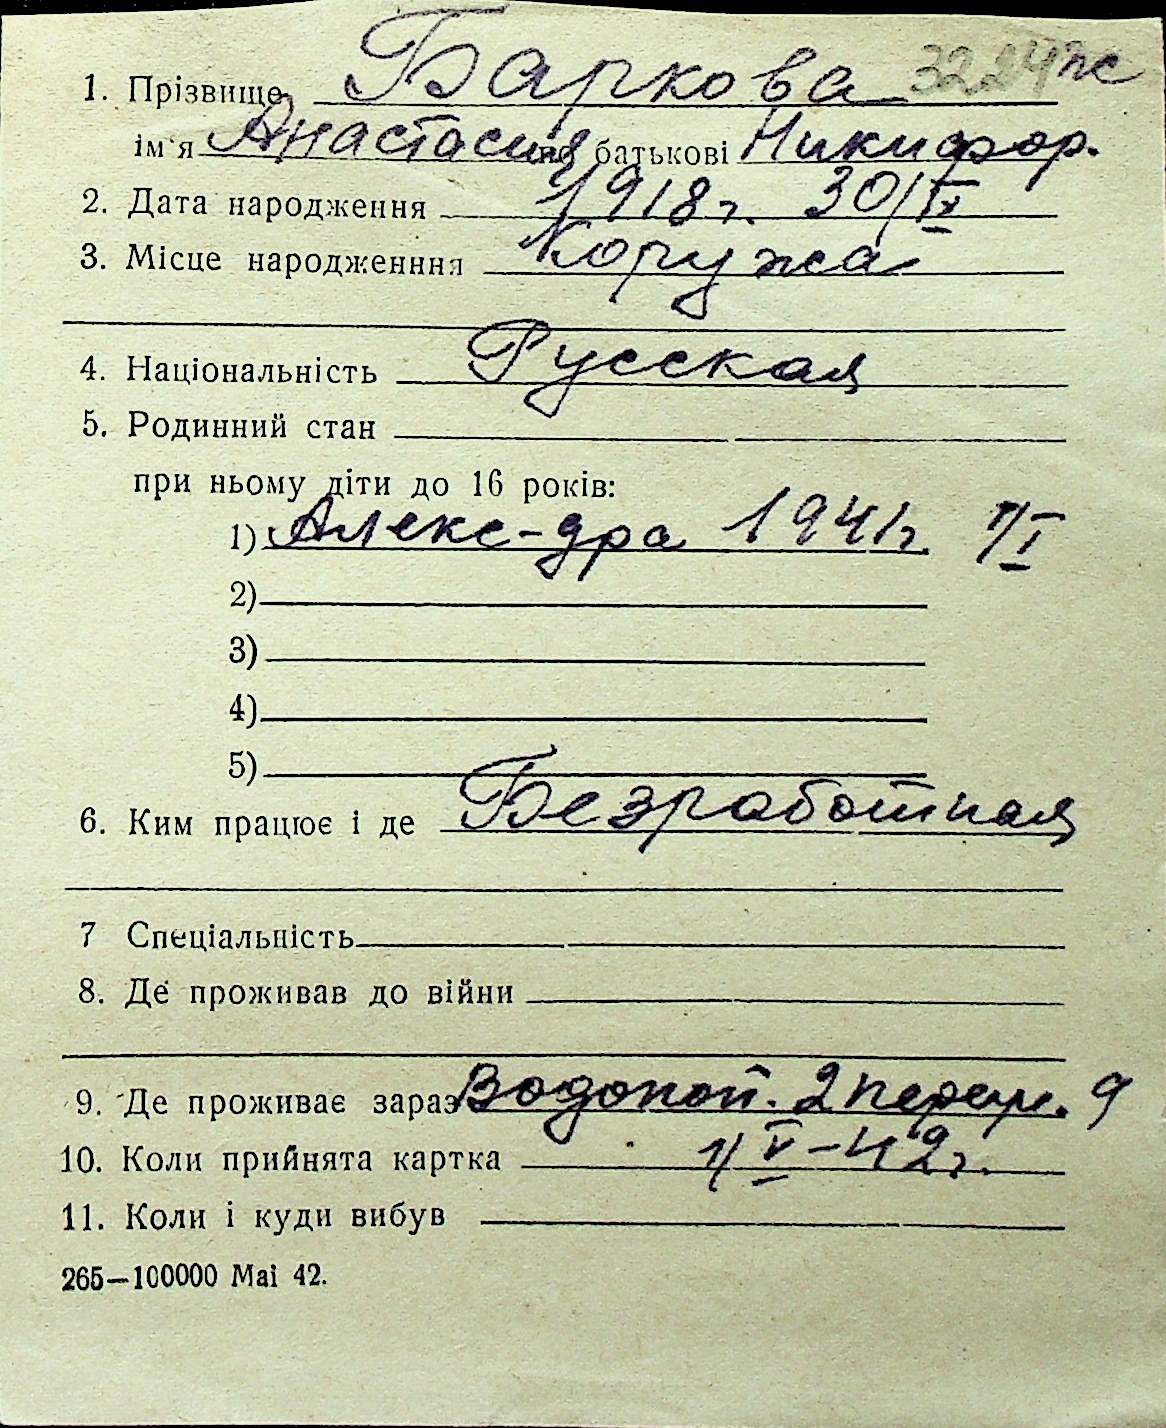 1. Прізвище Баркова 3224 ж
ім'я Анастасия по батькові Никифор.
2. Дата народження 1918 г. 30/IX
3. Місце народженння Коружа
4. Національність Русская
5. Родинний стан
при ньому діти до 16 років:
1) Алекс-дра 1941 г. 1/I
2)
3)
4)
5)
6. Ким працює і де Безработная
7 Спеціальність
8. Де проживав до війни
9. Де проживає зараз Водопой. 2 9
10. Коли прийнята картка 1/V-42 г.
11. Коли і куди вибув
265—100000 Mai 42.